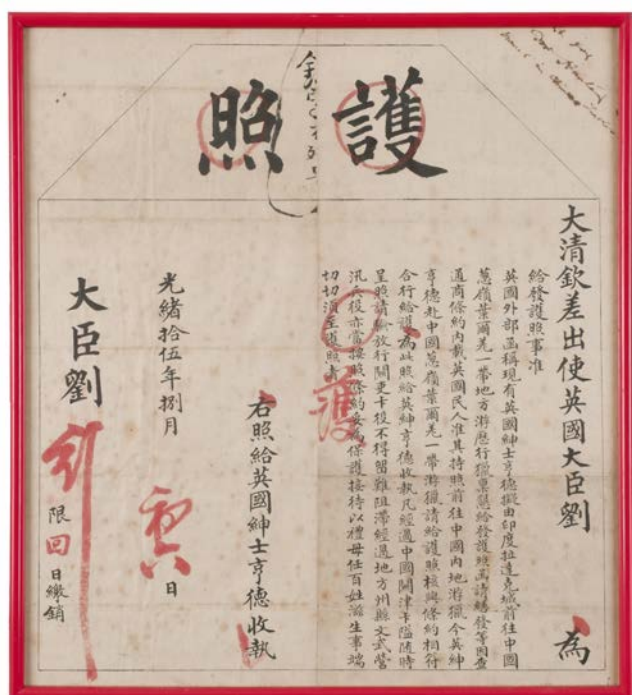 護照
大清欽差出使英國大臣劉 為
給發護照事准
英國外部函稱現有英國紳士亨德擬由印度拉達克城前往中國
蔥嶺葉爾羌一帶地方游歷行獵稟懇給發護照函請繕發等因查
通商條約內載英國民人准其持照前往中國內地游獵今英紳
亨德赴中國蔥嶺葉爾羌一帶游獵請給護照核與條約相符
合行給護為此照給英紳亨德收執凡經過中國關津卡隘隨時
呈照請驗放行關吏卡役不得留難阻滯經過地方州縣文武營
汛兵役亦當按照條約妥為保護接待以禮毋任百姓滋生事端
切切須至護照者
護
右照給英國紳士亨德收執
光緒拾伍年捌月 初六 日
大臣劉
限 回 日繳銷